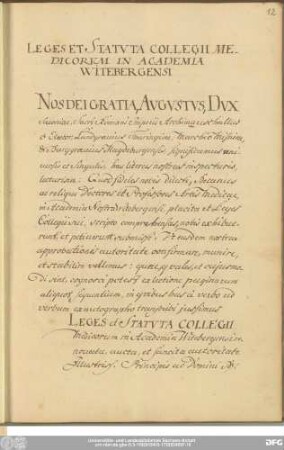 12
LEGES ET STATVTA COLLEGII ME-
DICORVM IN ACADEMIA
WITEBERGENSI
NOS DEI GRATIA, AVGVSTVS, DVX
Saxoniæ, Sacri Romani Imperii Archimarschallus
& Elector, Landgravius Thuringiæ, Marchio Misniæ,
& Burggravius Magdeburgensis, significamus uni-
versis et singulis, has literas nostras inspecturis,
lecturis: Quod fideles nostri dilecti,
ac reliqui Doctores et Professores Artis Medicæ,
in Academia Nostra Witebergensi, placita et Leges
Collegii sui, scripto comprehensas, nobis exhibue-
runt, et petiverunt, ut easdem
approbationis autoritate confirmare, munire,
et stabilire vellemus: quæ, quales, et cujusmo-
di sint, cognosci potest ex lectione paginarum
aliquot sequentium, in quibus hæc de verbo ad
verbum ex autographo transcribi jussimus
LEGES et STATVTA COLLEGII
Medicorum in Academia Witebergensi re-
novata, aucta, et sancita autoritate
Illustriss. Principis ac Domini D.
Universitäts- und Landesbibliothek Sachsen-Anhalt
DFG